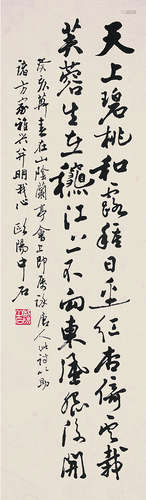 天上碧桃和露種日邊紅杏倚雲栽
芙蓉生在龝江上不向東風怨後開
癸亥莫春在山陰蘭亭會上即席詠唐人此詩以助
諸方家雅興并明我心 歐陽中石